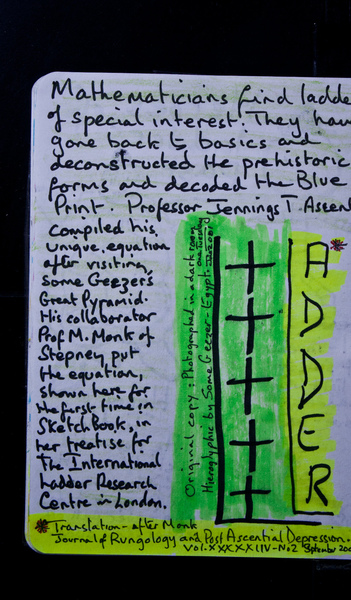 Mathematicians find ladde
of special interest! They hav
gone back to basics and
deconstructed the prehistoric
forms and decoded the Blue
Print. Professor Jennings T. Ascen
compiled his
unique equation
after visiting
Some Geezer's
Great Pyramid.
His collaborator
Prof M. Monk of
Stepney put
the equation,
shown here for
the first time in
SketchBook, in
her treatise for
The International
Ladder Research
Centre in London.
Original copy: Photographed in a dark room
one Tuesday
Hieroglyphic by Some Geezer - Egypt.
ADDER
* Translation - after Monk
Journal of Rungology and Post Ascential Depression.
Vol.XXXXXIIV-No2 September 200